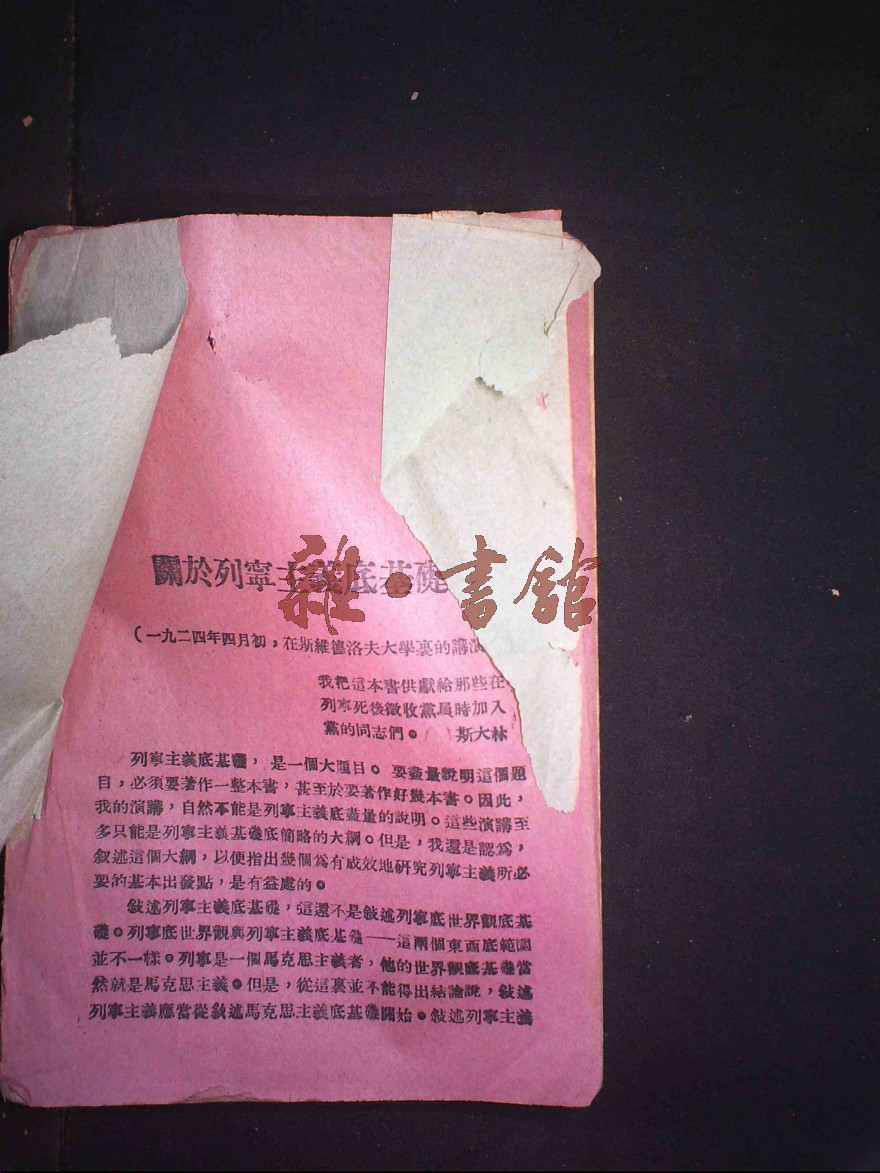 關於列寧主義底基礎
(一九二四年四月初，在斯維德洛夫大學裏的講演
我把這本書供獻給那些在
列寧死後徵收黨員時加入
黨的同志們。 斯大林
列寧主義底基礎，是一個大題目。要盡量說明這個題
目，必須要著作一整本書，甚至於要著作好幾本書。因此，
我的演講，自然不能是列寧主義底盡量的說明。這些演講至
多只能是列寧主義基礎底簡略的大綱。但是，我還是認爲，
敘述這個大綱，以便指出幾個爲有成效地研究列寧主義所必
要的基本出發點，是有益處的。
敍述列寧主義底基礎，這還不是敍述列寧底世界觀底基
礎。列寧底世界觀與列寧主義底基礎——這兩個東西底範圍
並不一樣。列寧是一個馬克思主義者，他的世界觀底基礎當
然就是馬克思主義。但是，從這裏並不能得出結論說，敍述
列寧主義應當從敘述馬克思主義底基礎開始。敍述列寧主義
雜·書館